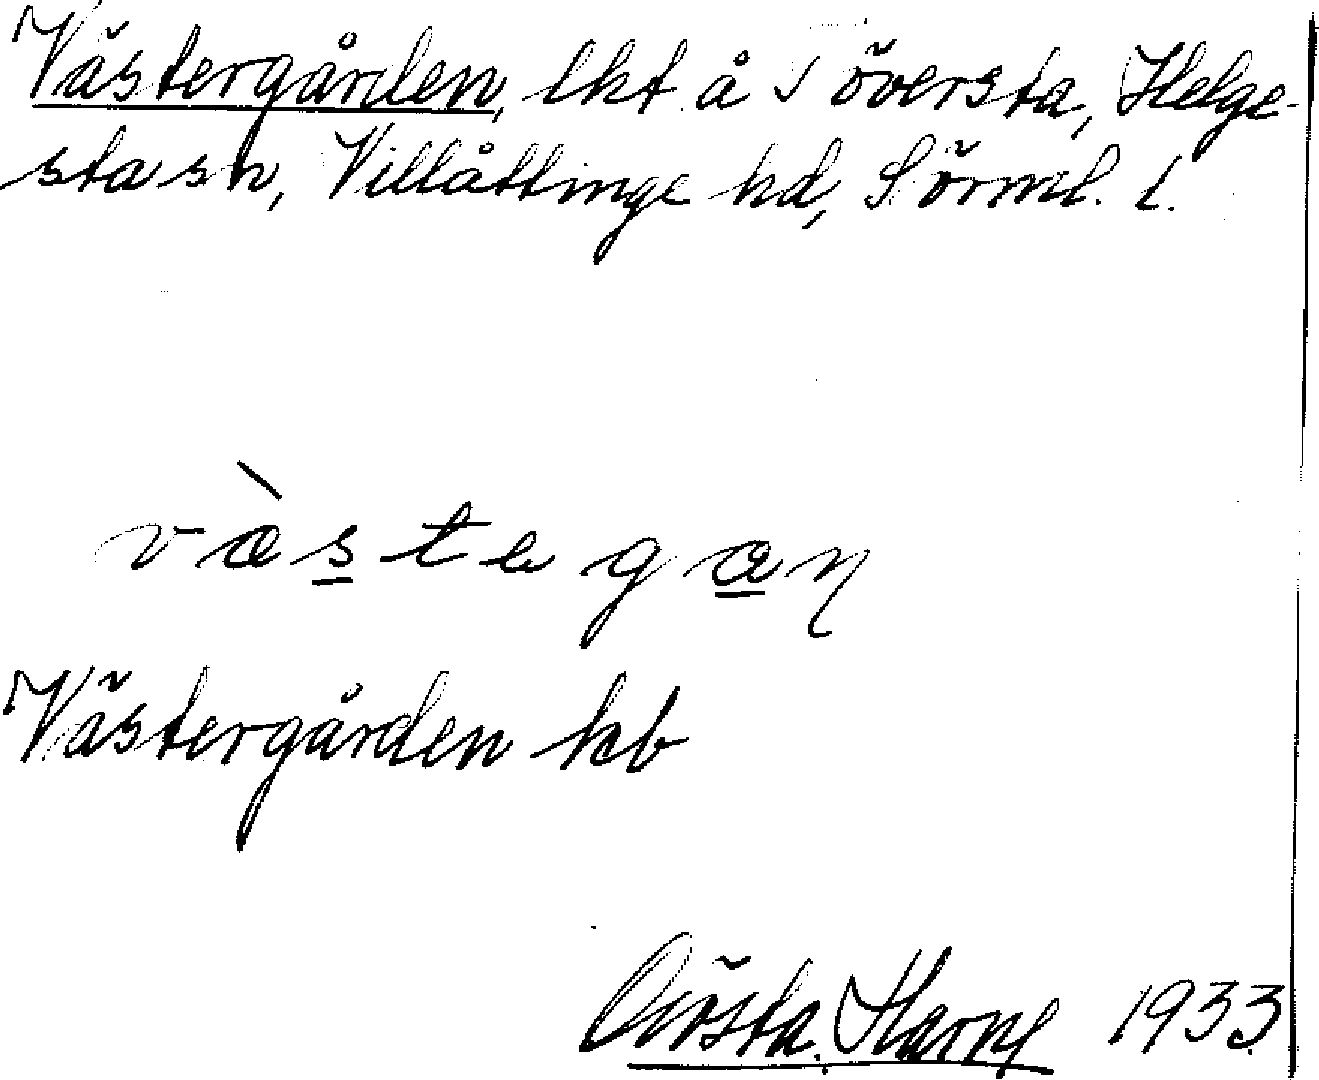 Västergården, lkt å Söversta, Helge-
sta sn, Villåttinge hd, Sörml. l.
vàstegaɳ
Västergården kb
Gösta Harne 1933